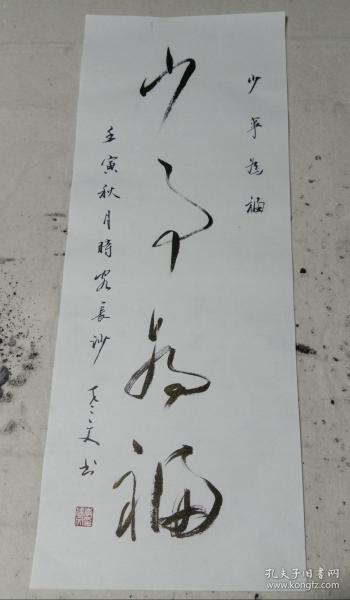 少事為福
少事為福
壬寅秋月時客長沙 文书
孔夫子旧书网